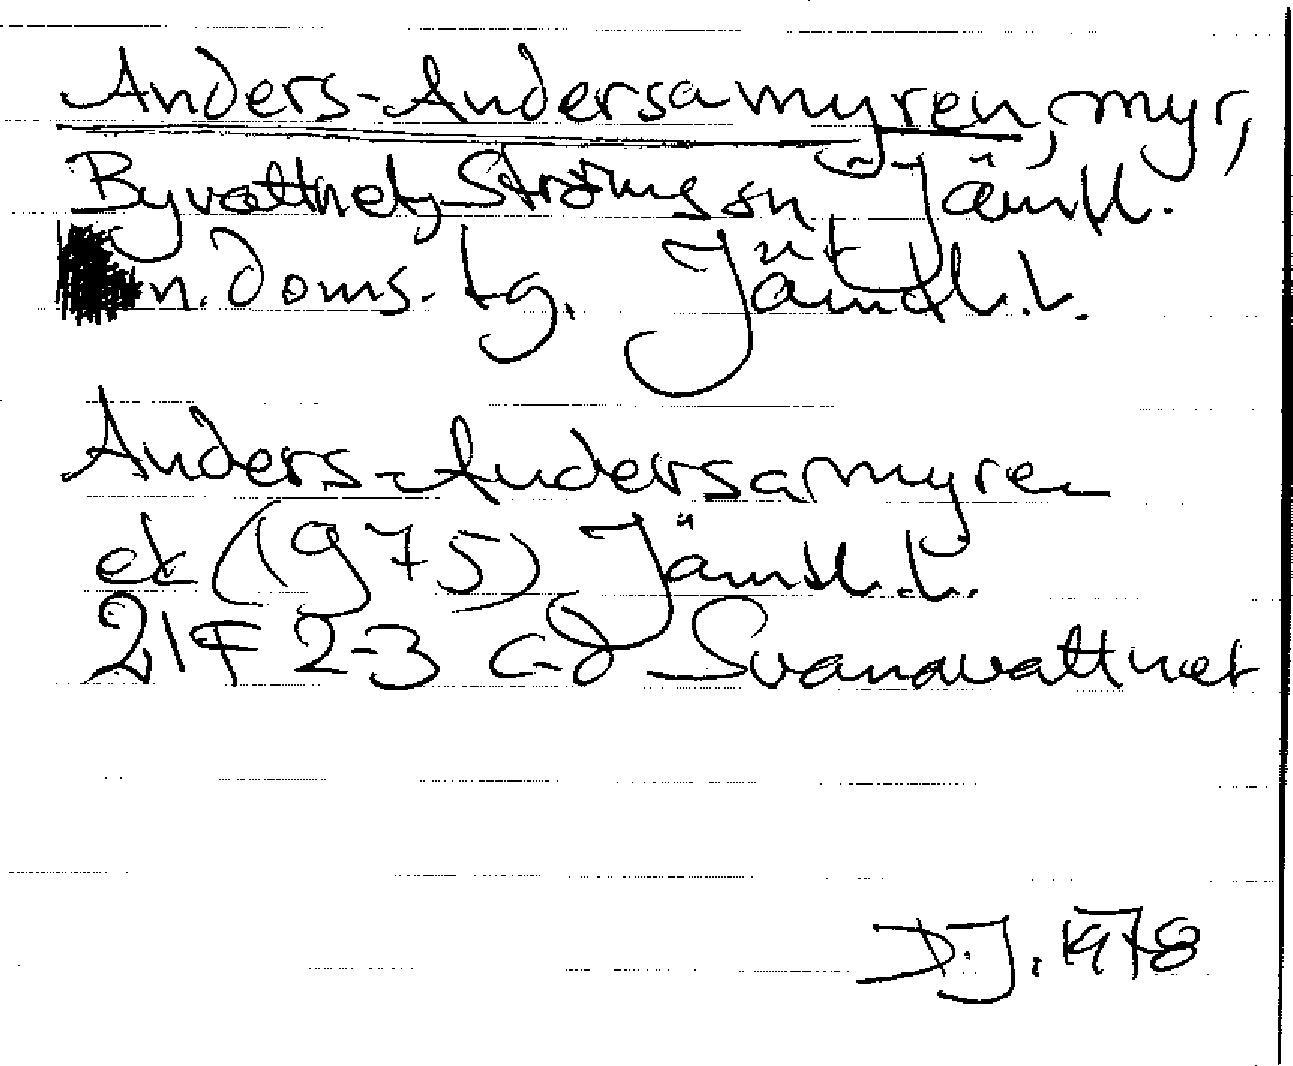 Anders-Andersamyren, myr,
Byvattnet, Ströms sn, Jämtl.
n. doms. tg. Jämtl. l.
Anders-Andersamyren
ek (1975) Jämtl. l.
21F 2-3 c-d Svanavattnet
D.J. 1978